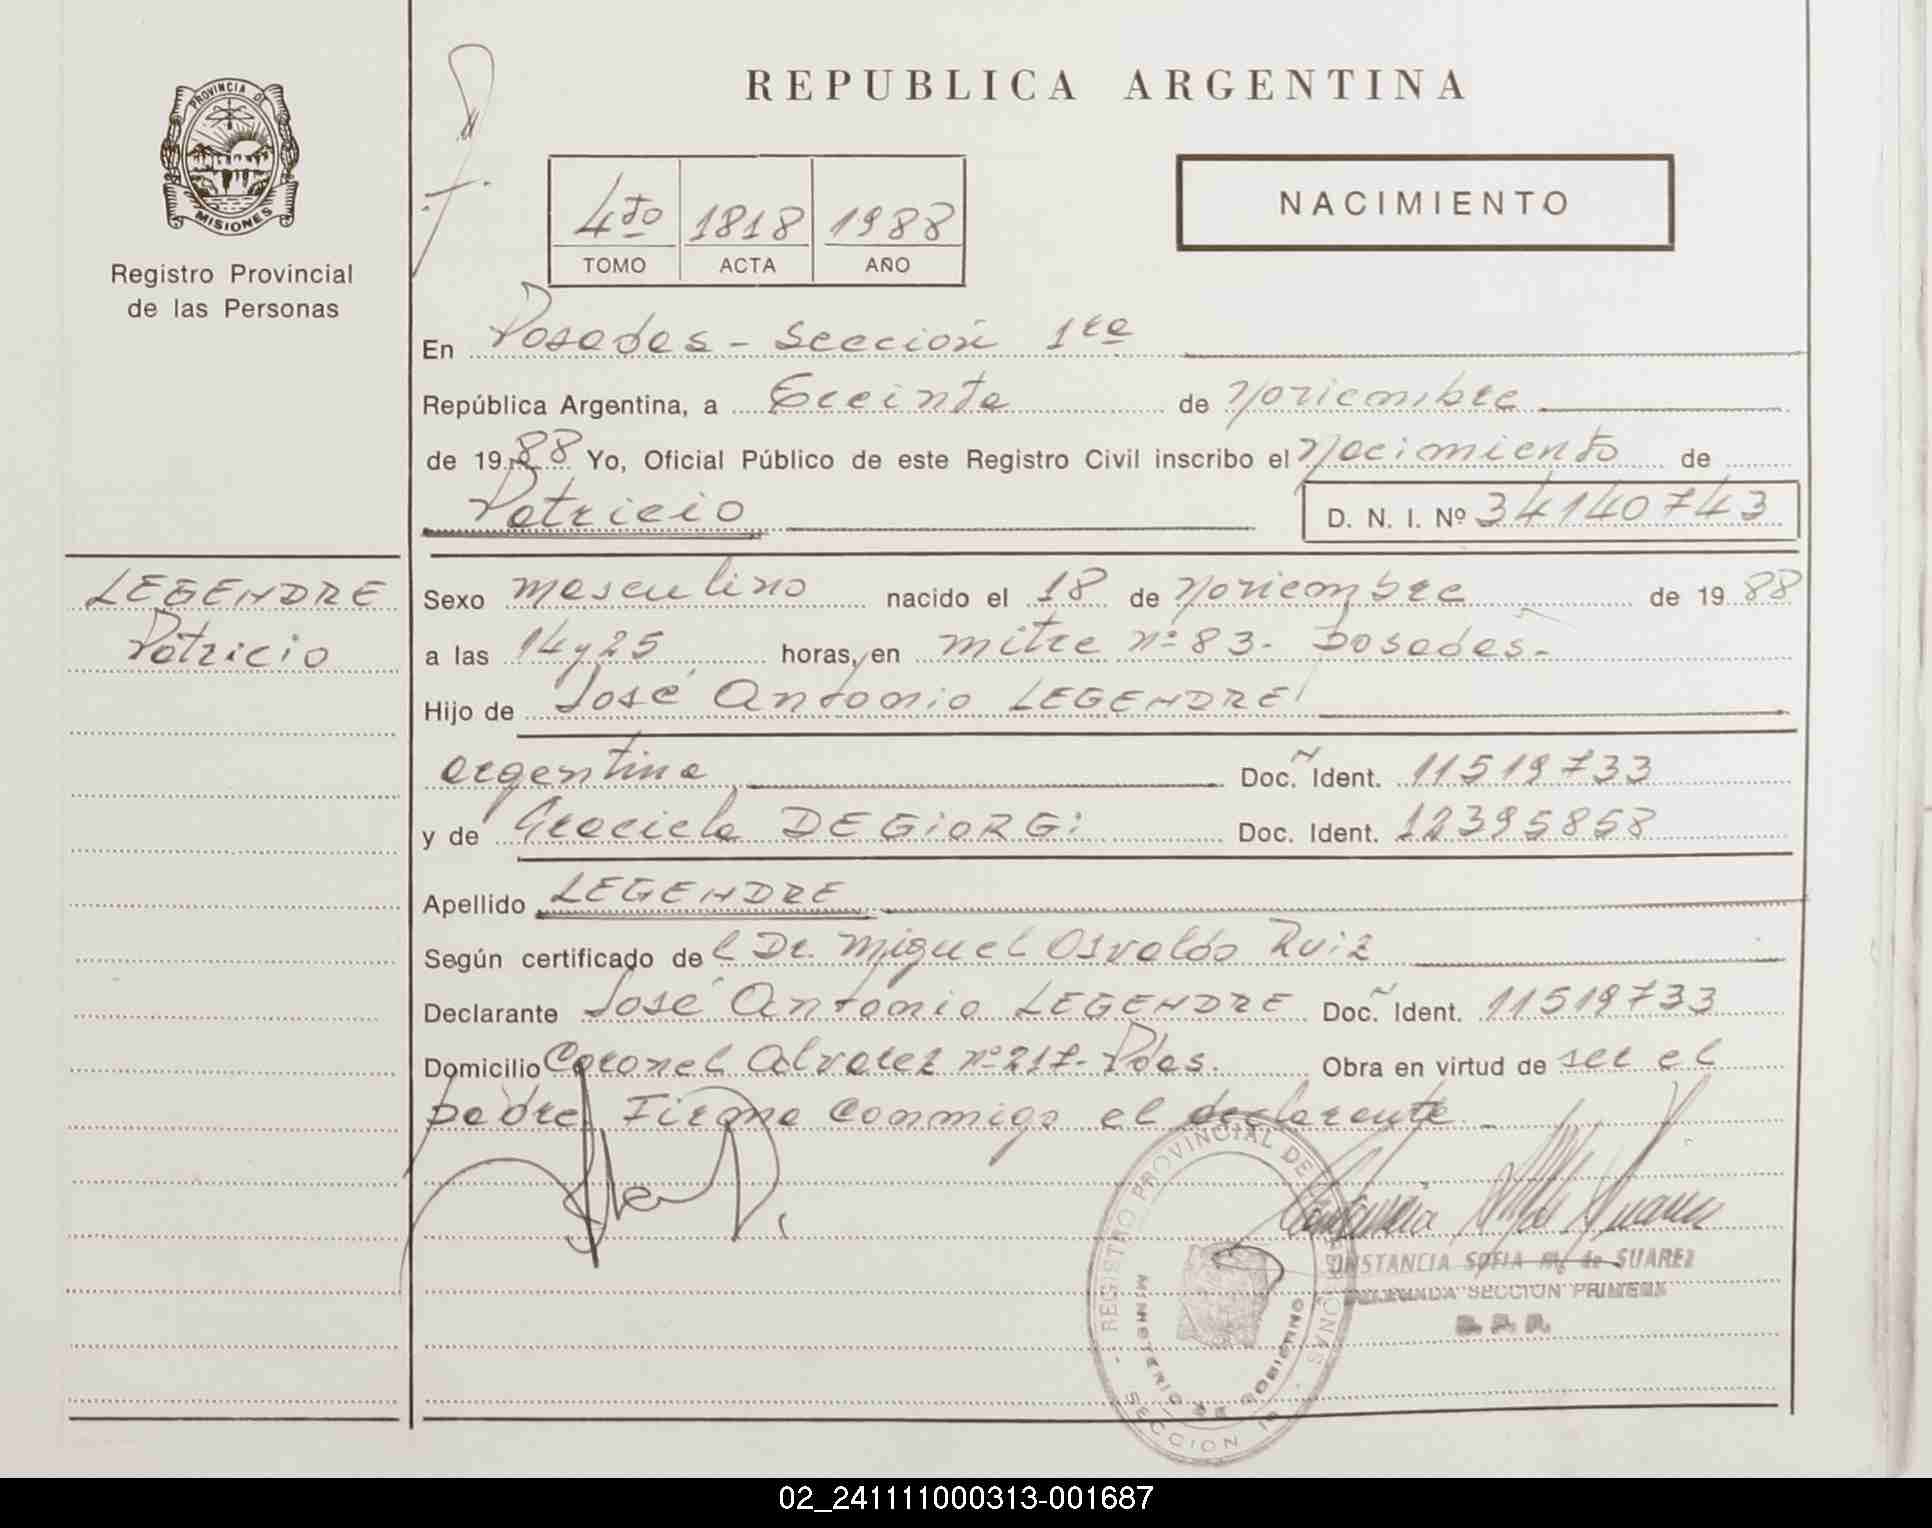 REPUBLICA ARGENTINA
PROVINCIA DE
MISIONES
Registro Provincial
de las Personas
4to 1818 1988
TOMO ACTA AÑO
NACIMIENTO
En Posadas - Sección 1ra
República Argentina, a treinta de noviembre
de 1988 Yo, Oficial Público de este Registro Civil inscribo el nacimiento de
Patricio D. N. I. Nº 34140743
LEGENDRE
Patricio
Sexo masculino nacido el 18 de noviembre de 1988
a las 14 y 25 horas, en mitre nº 83 - posadas -
Hijo de José Antonio LEGENDRE
argentina Doc. Ident. 11519733
y de Graciela DEGiORGi Doc. Ident. 12395858
Apellido LEGENDRE
Según certificado del Dr. Miguel Osvaldo Ruiz
Declarante José Antonio LEGENDRE Doc. Ident. 11519733
Domicilio Coronel Alvarez nº 217 - Pdas. Obra en virtud de ser el
padre. Firma conmigo el declarante -
REGISTRO PROVINCIAL DE
MINISTERIO DE GOBIERNO
SECCION 1ª
SOFIA M. de SUAREZ
SECCION PRIMERA
02_241111000313-001687